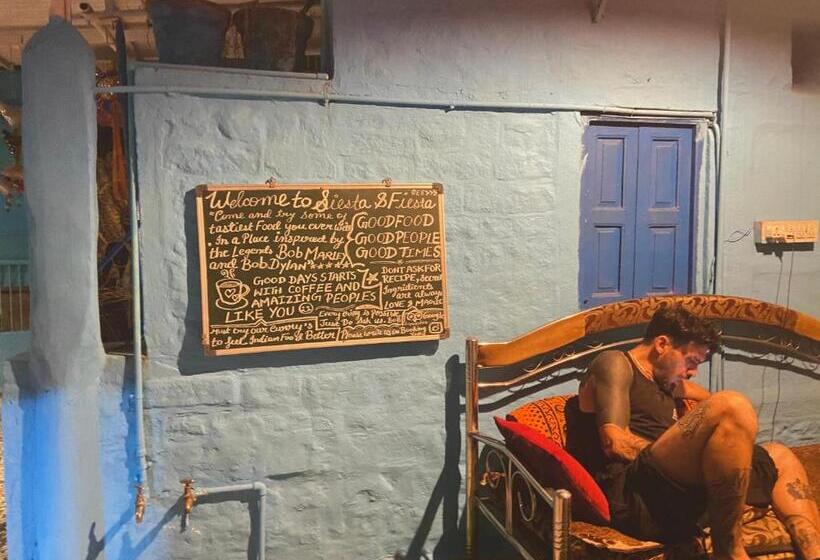 Welcome to Siesta & Fiesta
"Come and try some of
tastiest Food you ever
In a Place inspired by
the Legends Bob MARLEY
and Bob Dylan"
GOOD FOOD
GOOD PEOPLE
GOOD TIMES
GOOD DAYS STARTS
WITH COFFEE AND
AMAIZING PEOPLES
LIKE YOU
DONT ASK FOR
RECIPE, Secret
Ingridients
are always
LOVE & MARIE
Everything is Possible
Just Do Ask us.
Google
Must try our Curry's
to feel Indian Food Better
Please write us on Booking